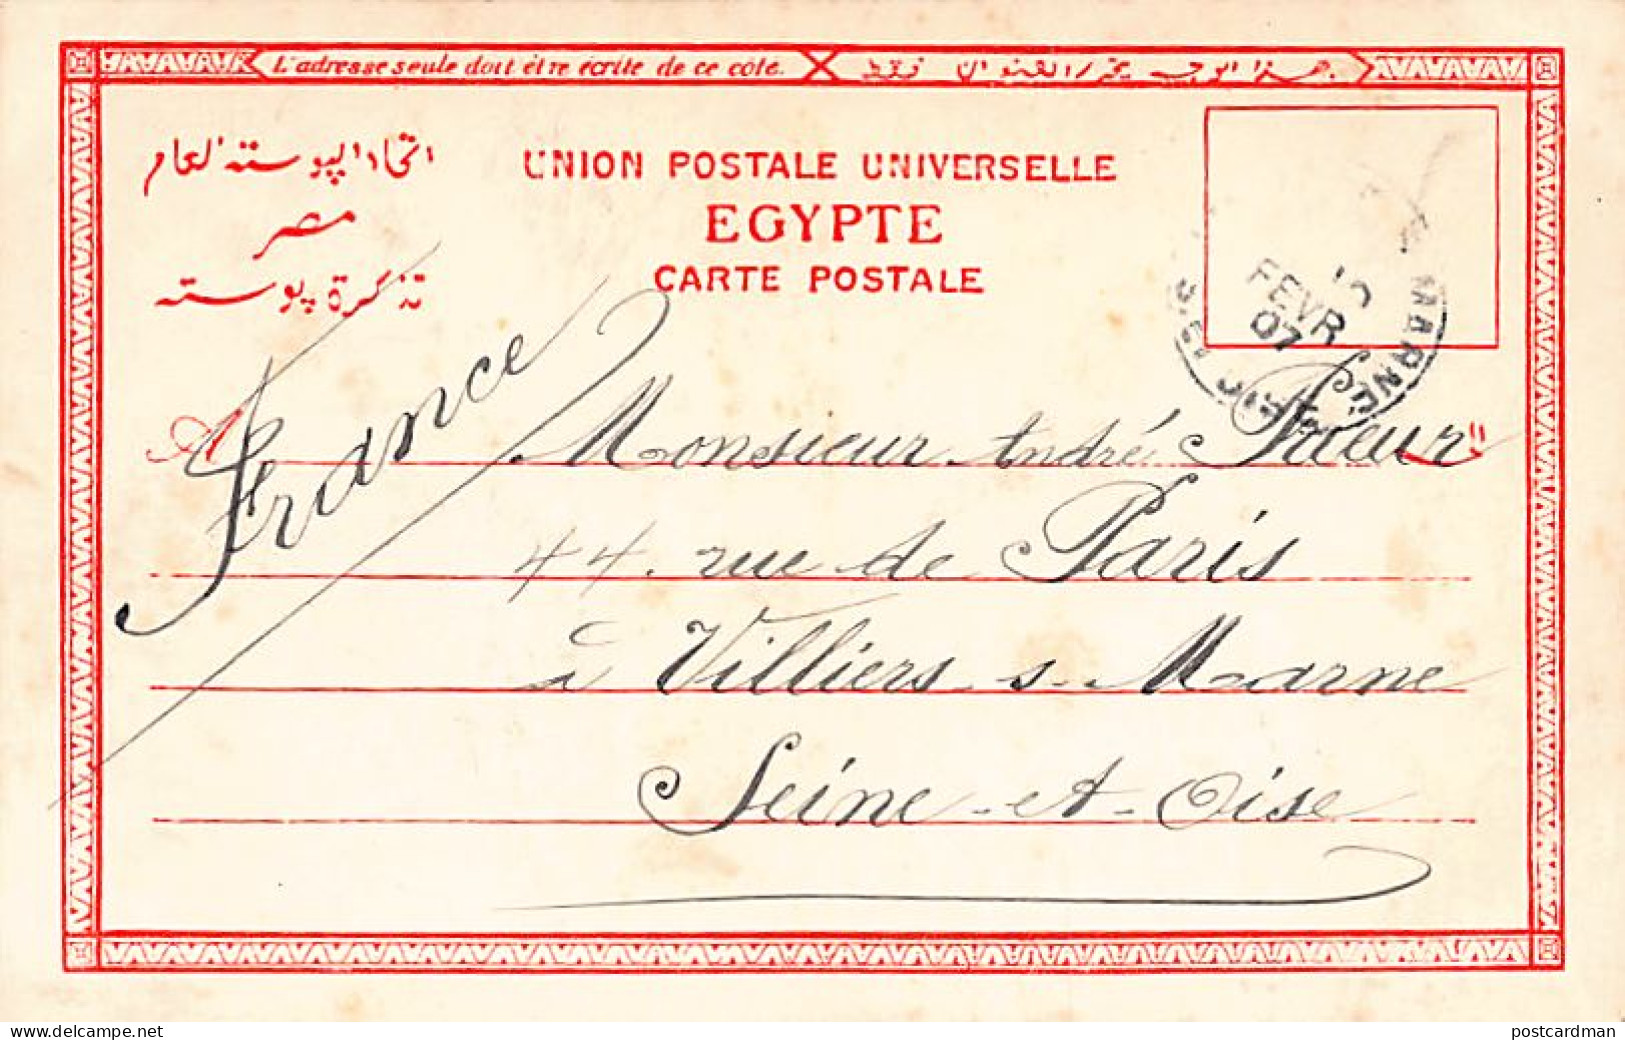 L'adresse seule doit être écrite de ce côté.
هذا الوجه يحرر العنوان فقط
اتحاد البوسته العام
مصر
تذكرة بوسته
UNION POSTALE UNIVERSELLE
EGYPTE
CARTE POSTALE
FEVR
07
MARNE
France
A Monsieur André
44. rue de Paris
à Villiers s. Marne
Seine-et-Oise
www.delcampe.net
postcardman